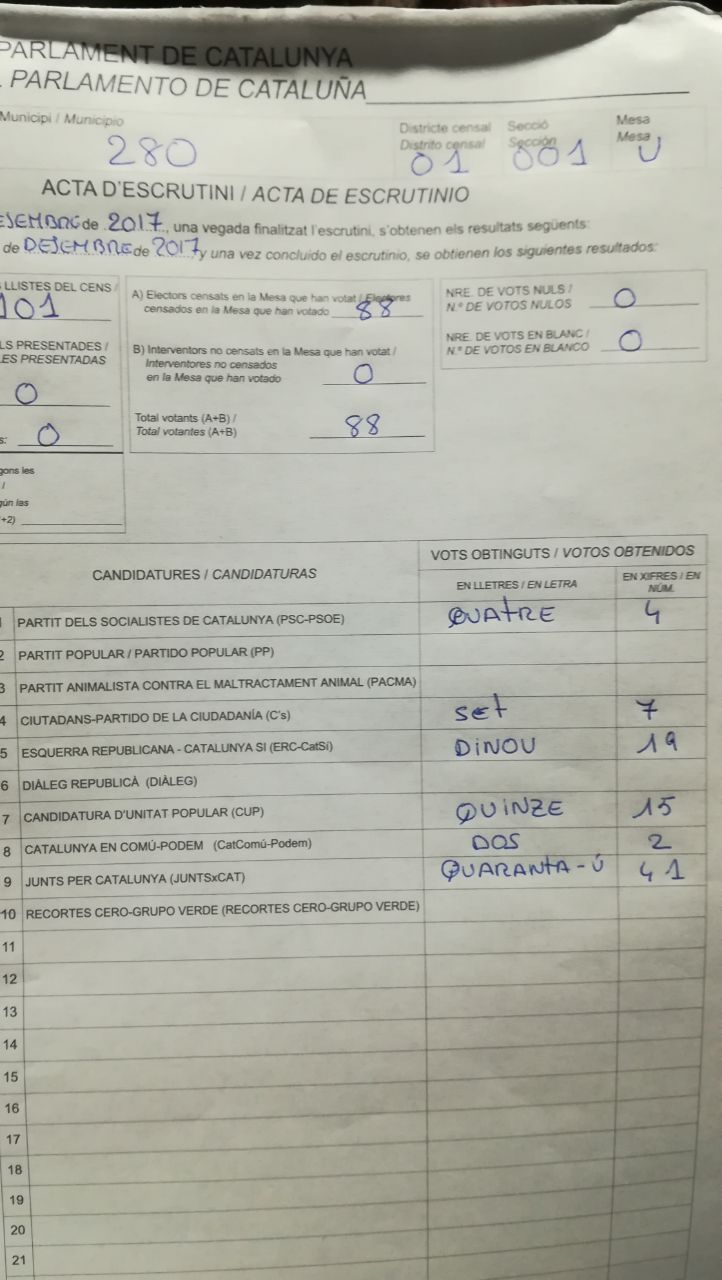 PARLAMENT DE CATALUNYA
PARLAMENTO DE CATALUÑA
Municipi / Municipio
280
Districte censal
Distrito censal
01
Secció
Sección
001
Mesa
Mesa
U
ACTA D'ESCRUTINI / ACTA DE ESCRUTINIO
ESEMBRE de 2017, una vegada finalitzat l'escrutini, s'obtenen els resultats següents:
de DESEMBRE de 2017 y una vez concluido el escrutinio, se obtienen los siguientes resultados:
LLISTES DEL CENS /
101
LS PRESENTADES /
LES PRESENTADAS
0
s: 0
gons les
/
gún las
+2)
A) Electors censats en la Mesa que han votat / Electores
censados en la Mesa que han votado 88
B) Interventors no censats en la Mesa que han votat /
Interventores no censados
en la Mesa que han votado 0
Total votants (A+B) /
Total votantes (A+B) 88
NRE. DE VOTS NULS /
N.º DE VOTOS NULOS 0
NRE. DE VOTS EN BLANC /
N.º DE VOTOS EN BLANCO 0
CANDIDATURES / CANDIDATURAS
VOTS OBTINGUTS / VOTOS OBTENIDOS
EN LLETRES / EN LETRA
EN XIFRES / EN
NÚM.
1 PARTIT DELS SOCIALISTES DE CATALUNYA (PSC-PSOE) QUATRE 4
2 PARTIT POPULAR / PARTIDO POPULAR (PP)
3 PARTIT ANIMALISTA CONTRA EL MALTRACTAMENT ANIMAL (PACMA)
4 CIUTADANS-PARTIDO DE LA CIUDADANÍA (C's) SET 7
5 ESQUERRA REPUBLICANA - CATALUNYA SI (ERC-CatSí) DINOU 19
6 DIÀLEG REPUBLICÀ (DIÀLEG)
7 CANDIDATURA D'UNITAT POPULAR (CUP) QUINZE 15
8 CATALUNYA EN COMÚ-PODEM (CatComú-Podem) DOS 2
9 JUNTS PER CATALUNYA (JUNTSxCAT) QUARANTA-Ú 41
10 RECORTES CERO-GRUPO VERDE (RECORTES CERO-GRUPO VERDE)
11
12
13
14
15
16
17
18
19
20
21